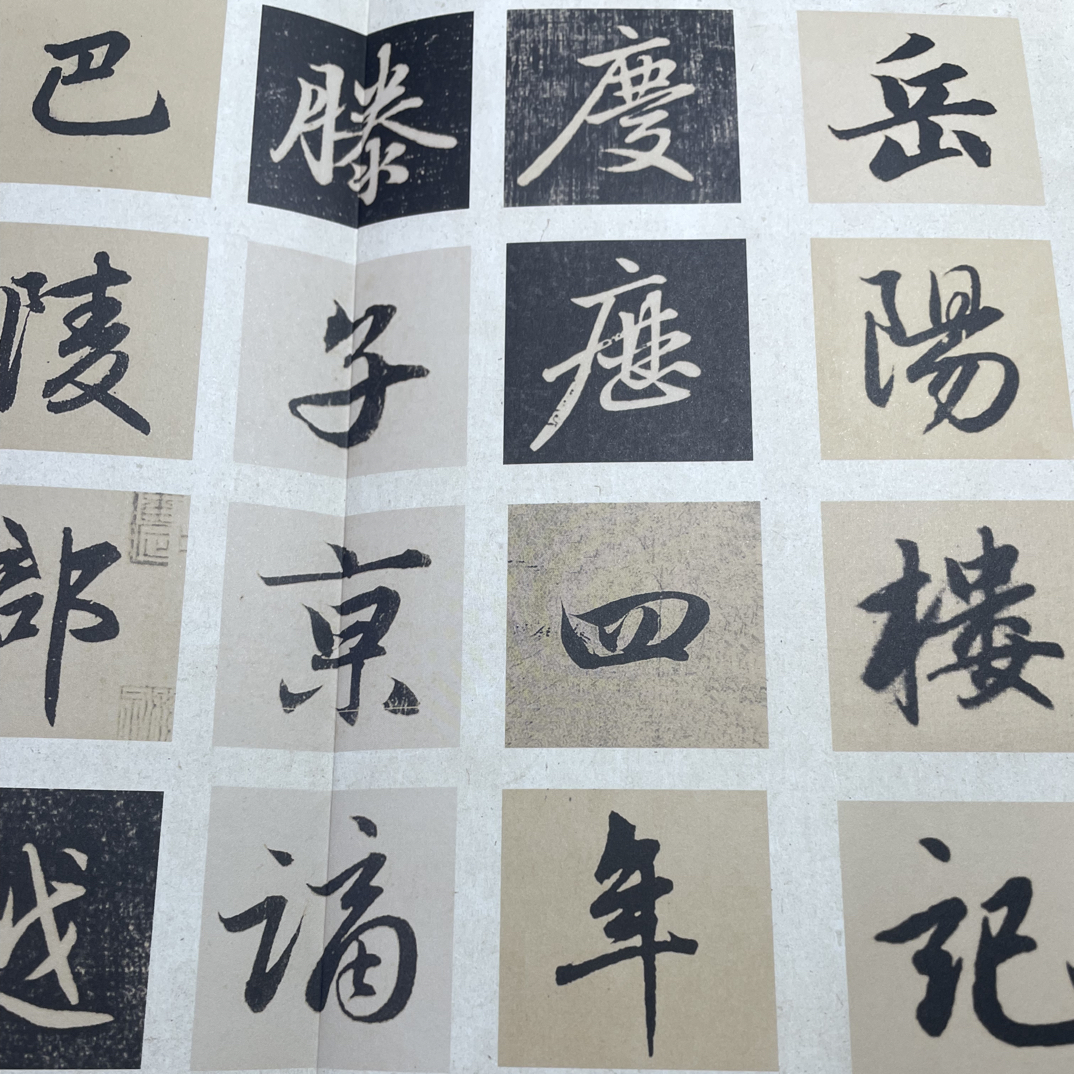 岳陽樓記
慶曆四年
滕子京謫
巴陵郡越